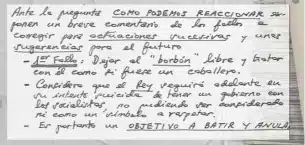 Ante la pregunta COMO PODEMOS REACCIONAR se
ponen un breve comentario de los fallos a
corregir para actuaciones sucesivas y unas
sugerencias para el futuro
- 1er Fallo: Dejar al "borbón" libre y tratar
con él como si fuese un caballero.
- Considero que el Rey seguirá adelante en
su intento suicida de tener un gobierno con
los socialistas, no pudiendo ser considerado
ni como un símbolo a respetar.
- Es por tanto un OBJETIVO A BATIR Y ANULA